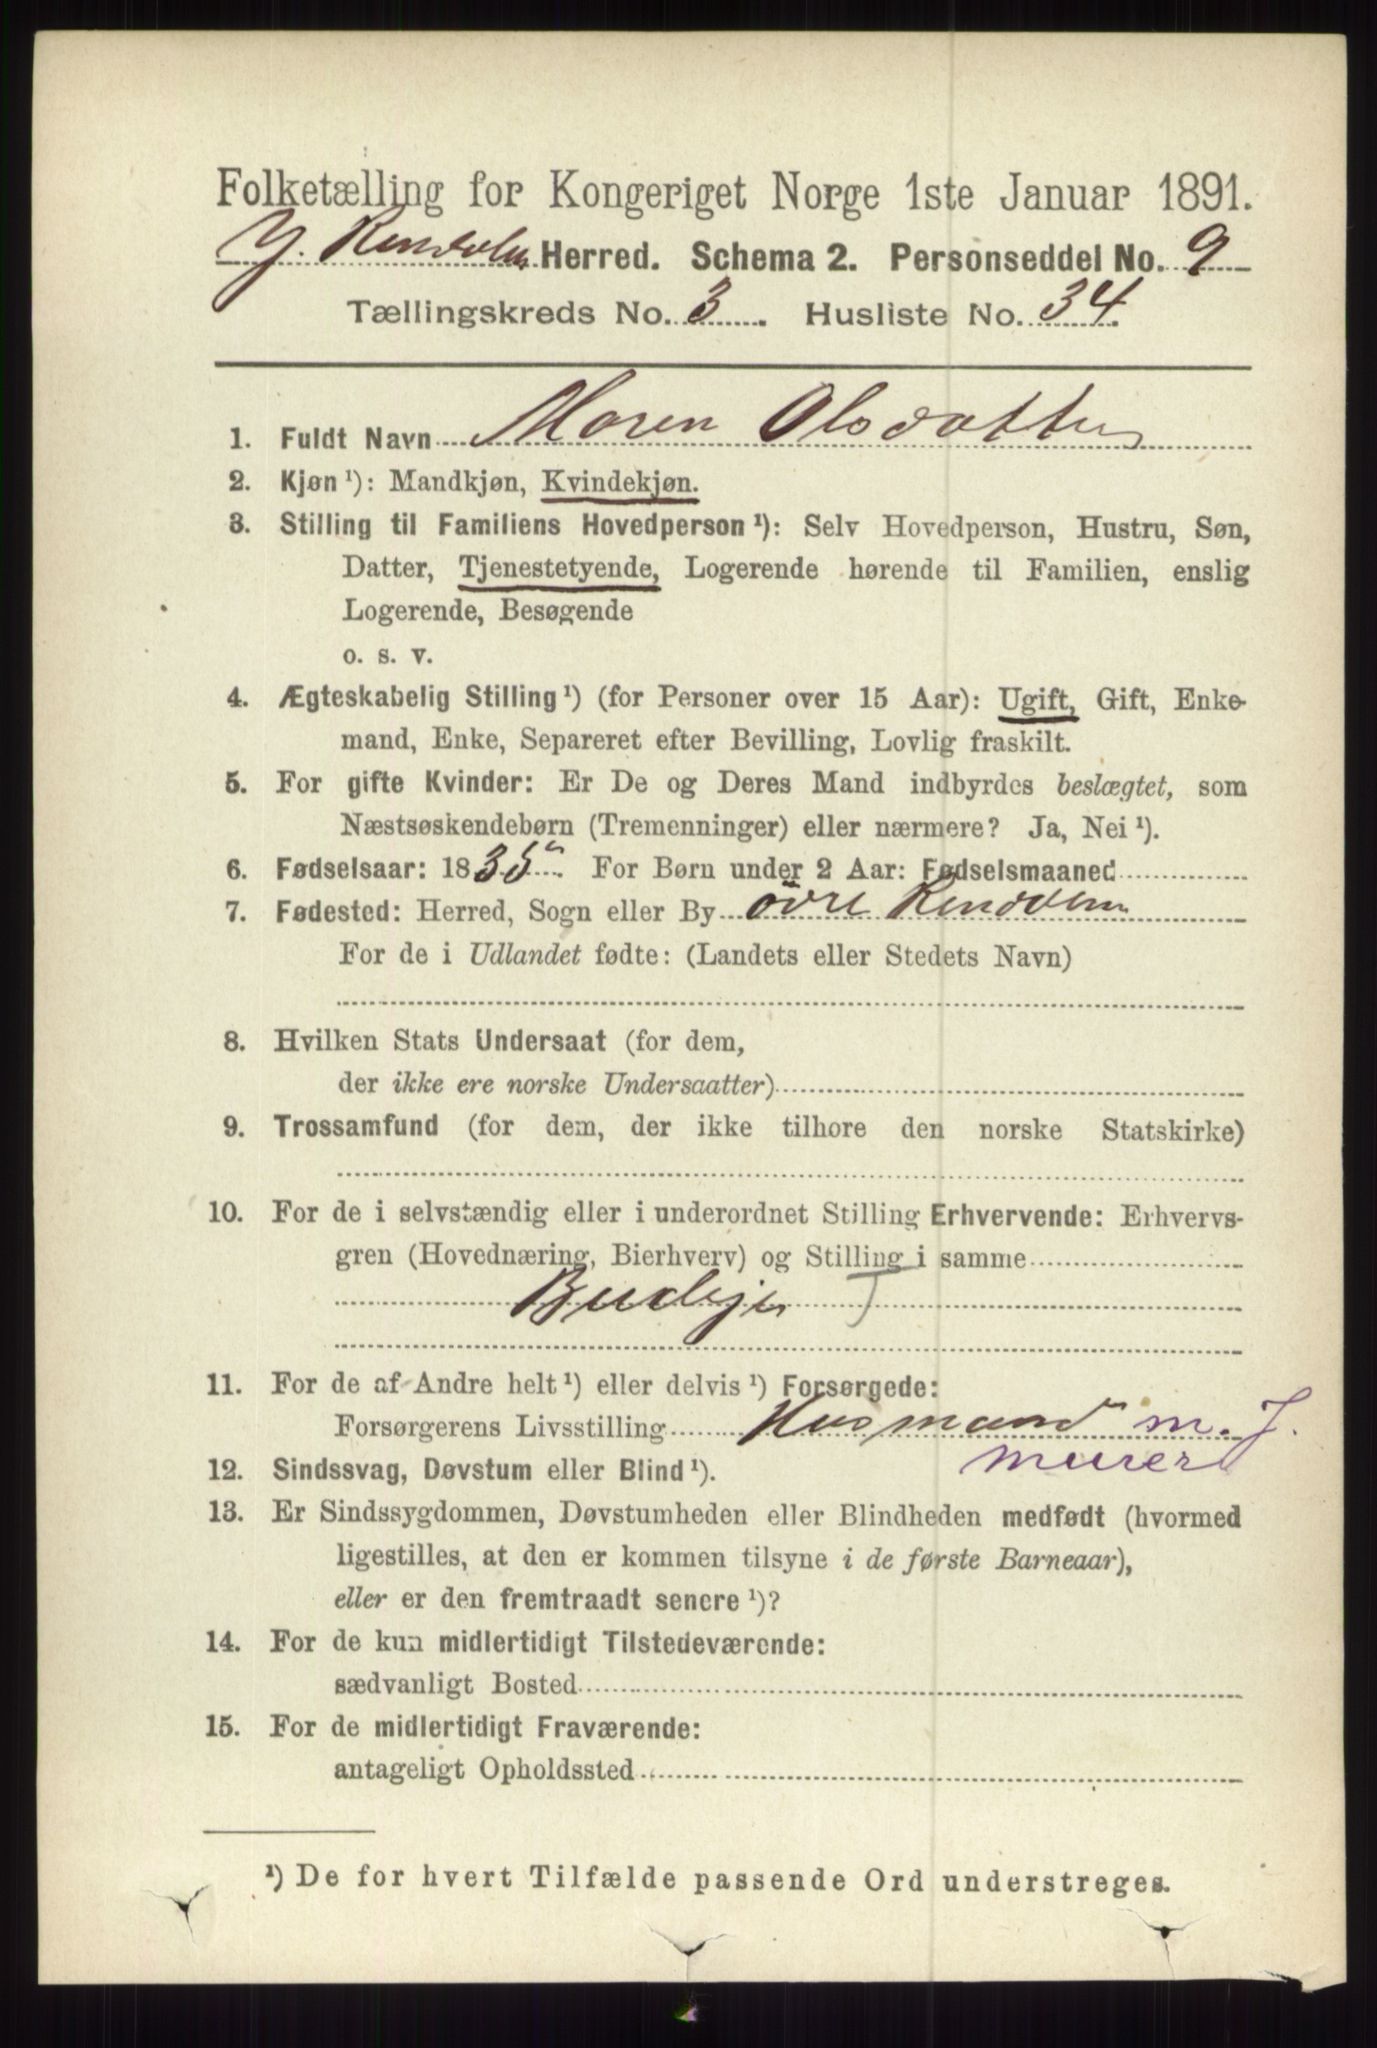 Folketælling for Kongeriget Norge 1ste Januar 1891.
Y. Rendalen Herred. Schema 2. Personseddel No. 9
Tællingskreds No. 3. Husliste No. 34.
1. Fuldt Navn Maren Olsdatter
2. Kjøn ¹): Mandkjøn, Kvindekjøn.
3. Stilling til Familiens Hovedperson ¹): Selv Hovedperson, Hustru, Søn,
Datter, Tjenestetyende, Logerende hørende til Familien, enslig
Logerende, Besøgende
o. s. v.
4. Ægteskabelig Stilling ¹) (for Personer over 15 Aar): Ugift, Gift, Enke-
mand, Enke, Separeret efter Bevilling, Lovlig fraskilt.
5. For gifte Kvinder: Er De og Deres Mand indbyrdes beslægtet, som
Næstsøskendebørn (Tremenninger) eller nærmere? Ja, Nei ¹).
6. Fødselsaar: 1835. For Børn under 2 Aar: Fødselsmaaned
7. Fødested: Herred, Sogn eller By øvre Rendalen
For de i Udlandet fødte: (Landets eller Stedets Navn)
8. Hvilken Stats Undersaat (for dem,
der ikke ere norske Undersaatter)
9. Trossamfund (for dem, der ikke tilhøre den norske Statskirke)
10. For de i selvstændig eller i underordnet Stilling Erhvervende: Erhvervs-
gren (Hovednæring, Bierhverv) og Stilling i samme
Budeje T
11. For de af Andre helt ¹) eller delvis ¹) Forsørgede:
Forsørgerens Livsstilling Husmand m. J.
murer
12. Sindssvag, Døvstum eller Blind ¹).
13. Er Sindssygdommen, Døvstumheden eller Blindheden medfødt (hvormed
ligestilles, at den er kommen tilsyne i de første Barneaar),
eller er den fremtraadt senere ¹)?
14. For de kun midlertidigt Tilstedeværende:
sædvanligt Bosted
15. For de midlertidigt Fraværende:
antageligt Opholdssted
¹) De for hvert Tilfælde passende Ord understreges.